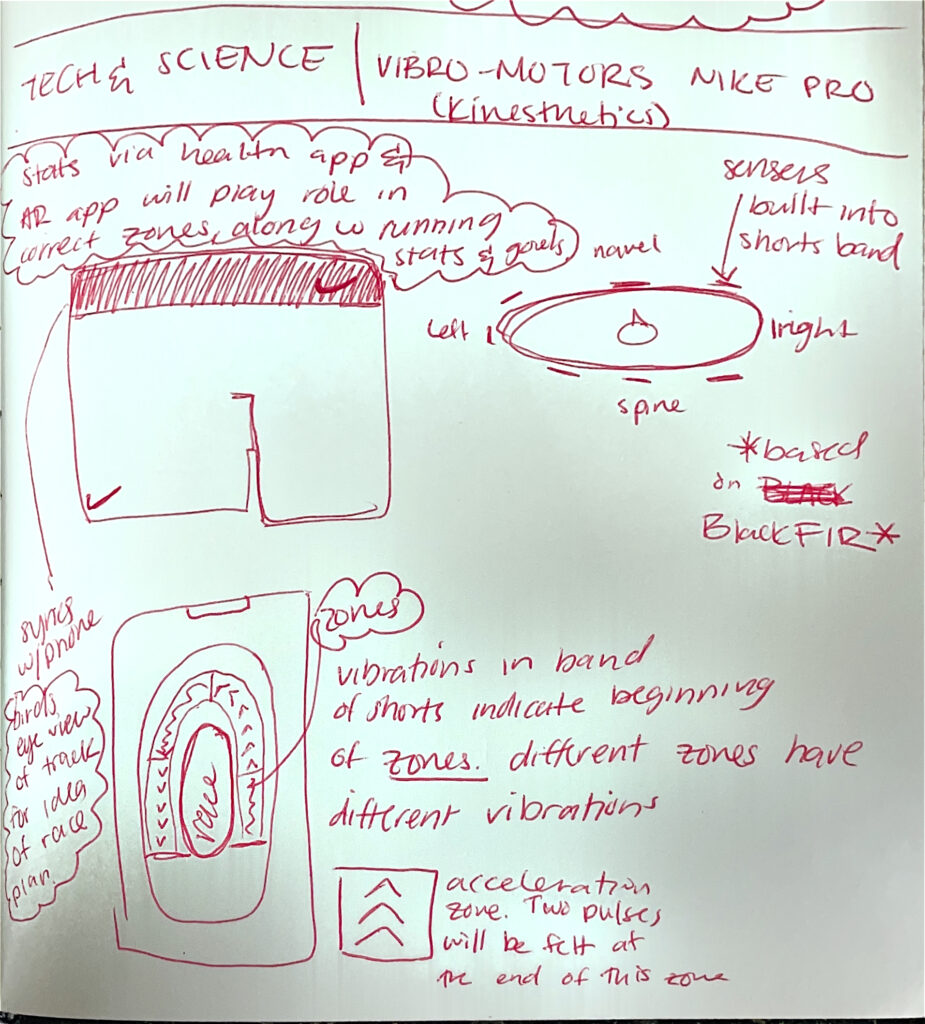 TECH & SCIENCE | VIBRO-MOTORS NIKE PRO
(Kinesthetics)
stats via health app &
AR app will play role in
correct zones, along w running
stats & goals
sensers
built into
shorts band
navel
left
right
spine
*based
on BLACK
BlackFIR*
syncs
w/phone
zones
birds
eye view
of track
for idea
of race
plan.
race
vibrations in band
of shorts indicate beginning
of zones. different zones have
different vibrations
acceleration
zone. Two pulses
will be felt at
the end of this zone